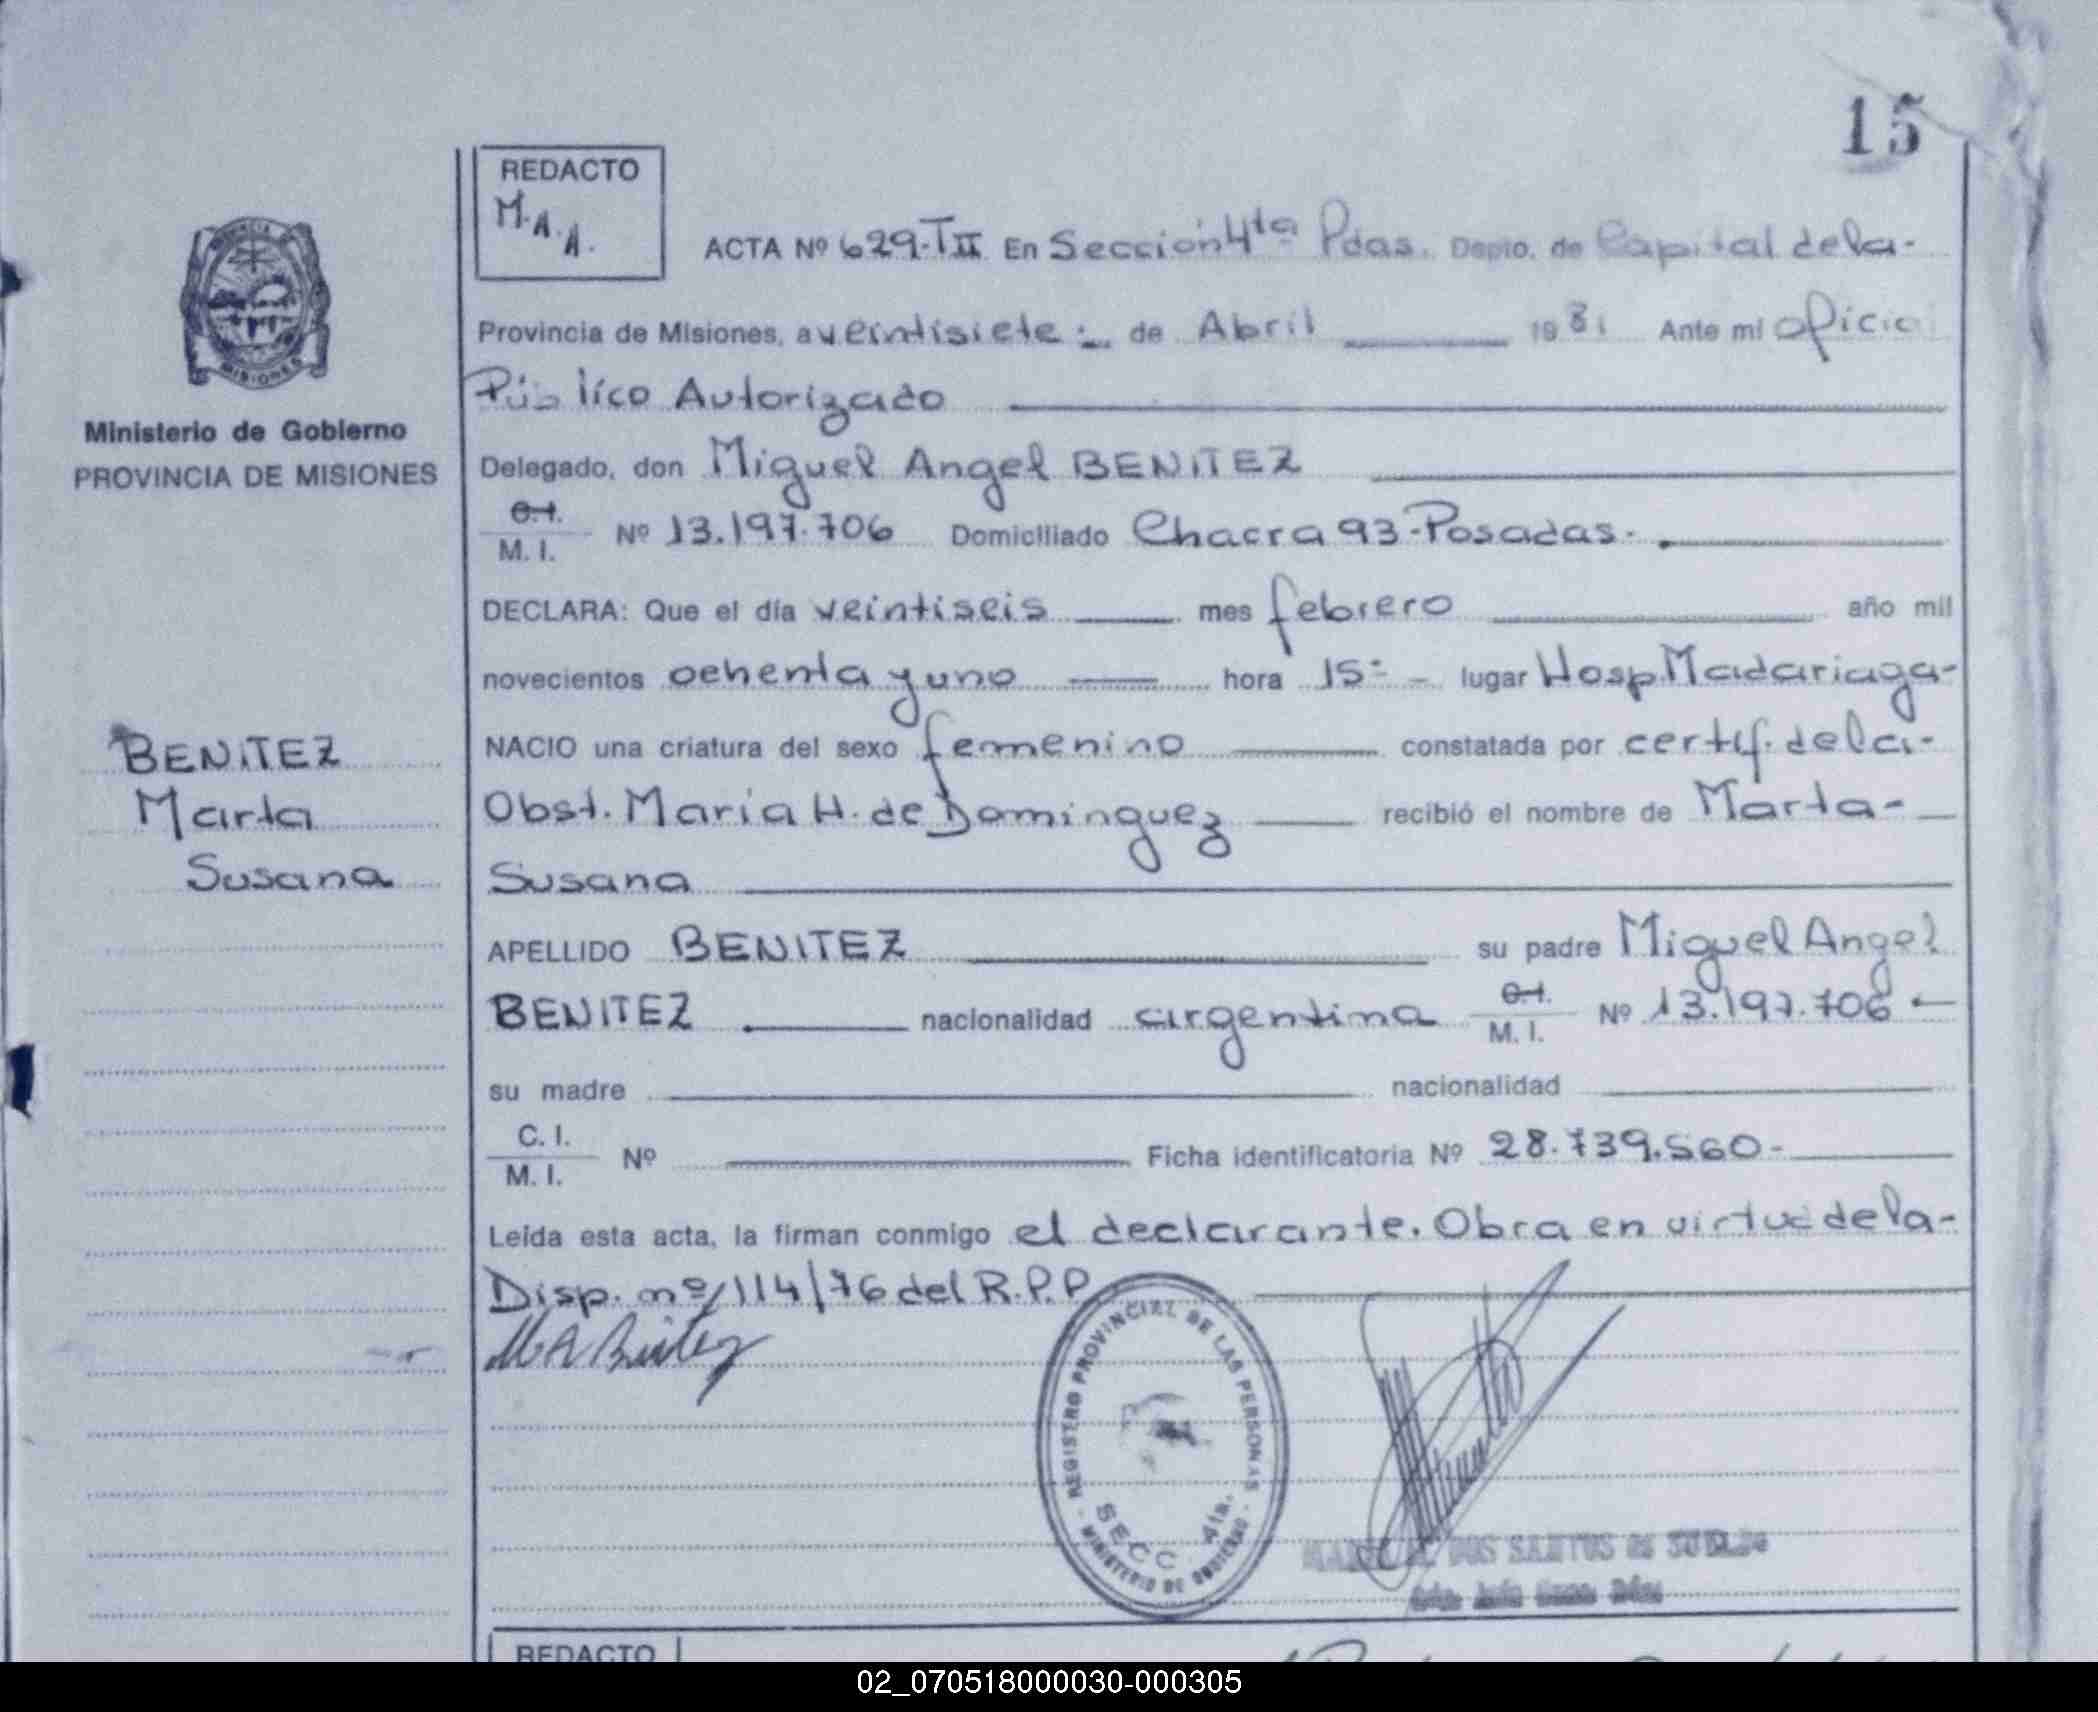 15
REDACTO
M.A.A.
ACTA Nº 629-TII En Sección 4ta Pdas. Depto. de Capital de la-
Provincia de Misiones, a veintisiete de Abril 1981 Ante mi oficial
Público Autorizado
Ministerio de Gobierno
PROVINCIA DE MISIONES
Delegado, don Miguel Angel BENITEZ
C.I.
M. I. Nº 13.197.706 Domiciliado Chacra 93-Posadas-
DECLARA: Que el día veintiseis mes febrero año mil
novecientos ochenta y uno hora 15- lugar Hosp. Madariaga-
NACIO una criatura del sexo femenino constatada por certif. de la-
Obst. Maria H. de Dominguez recibió el nombre de Marta-
Susana
BENITEZ
Marta
Susana
APELLIDO BENITEZ su padre Miguel Angel
BENITEZ nacionalidad argentina C.I. M. I. Nº 13.197.706
su madre nacionalidad
C. I.
M. I. Nº Ficha identificatoria Nº 28.739.560-
Leída esta acta, la firman conmigo el declarante. Obra en virtud de la-
Disp. nº 114/76 del R.P.P
M A Benitez
REGISTRO PROVINCIAL DE LAS PERSONAS
SECC 4ta.
MINISTERIO DE GOBIERNO
DOS SANTOS de
REDACTO
02_070518000030-000305